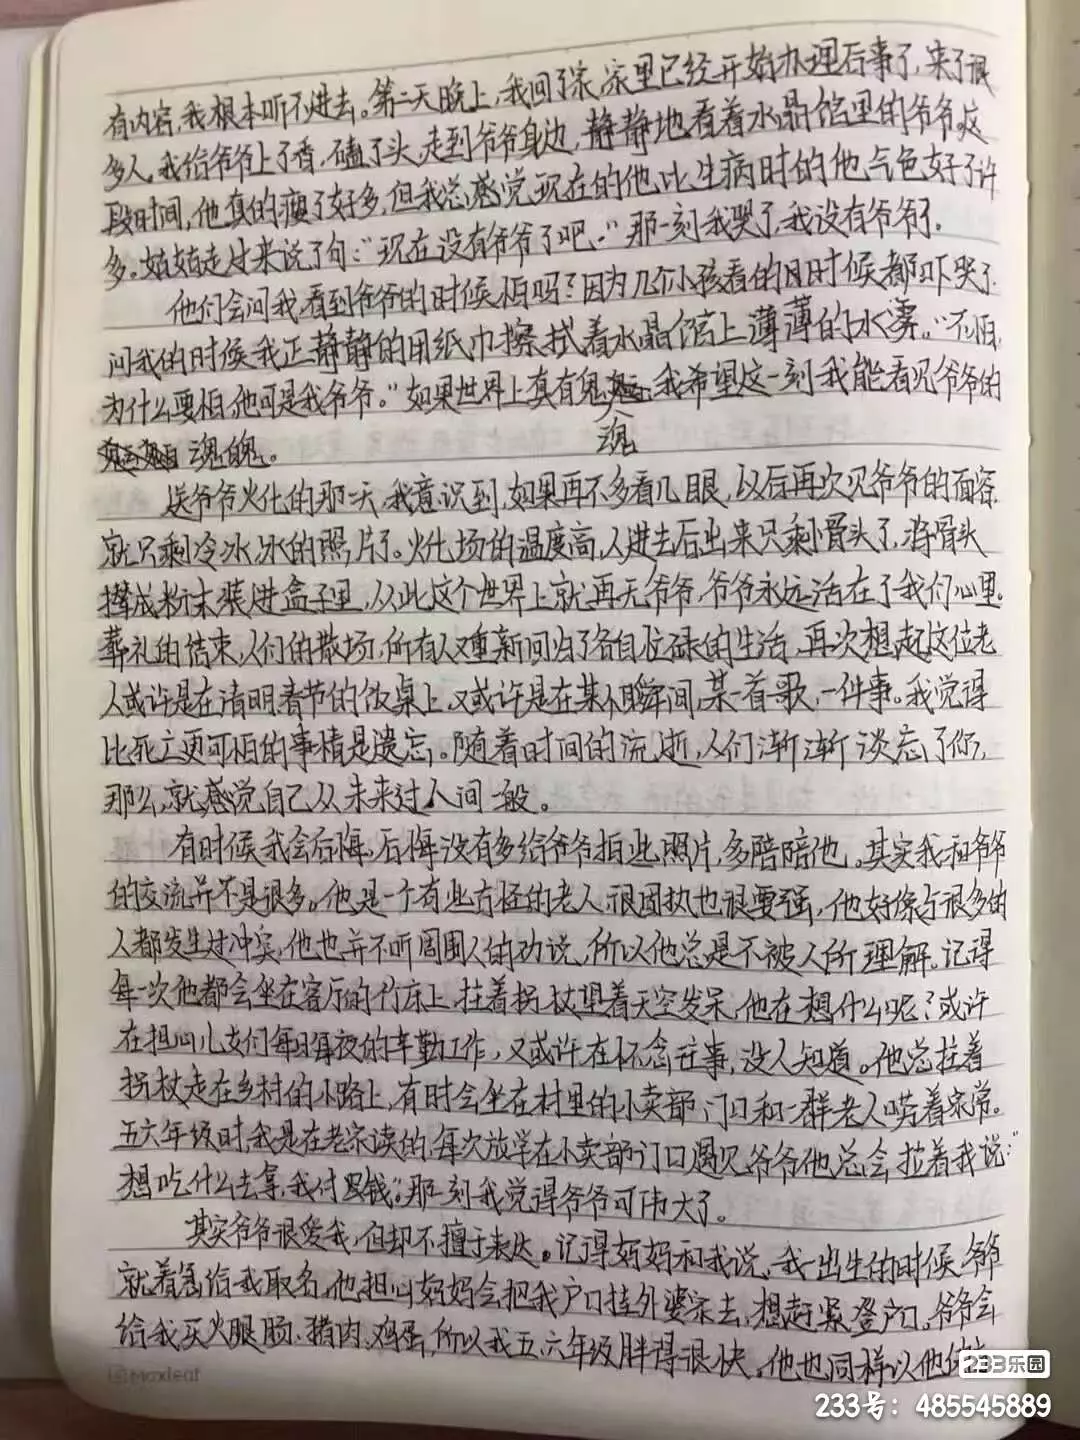 有内容,我根本听不进去。第二天晚上,我回了家,家里已经开始办理后事了,来了很
多人。我给爷爷上了香,磕了头,走到爷爷身边,静静地看着水晶馆里的爷爷。这
段时间,他真的瘦了好多,但我总感觉现在的他比生病时的他气色好了许
多。姑姑走过来说了句:“现在没有爷爷了吧。”那一刻我哭了,我没有爷爷了。
他们会问我,看到爷爷的时候怕吗?因为几个小孩看的时候都吓哭了.
问我的时候我正静静的用纸巾擦拭着水晶馆上薄薄的水雾。“不怕,
为什么要怕,他可是我爷爷。”如果世界上真有鬼魂,我希望这一刻我能看见爷爷的
魂魄。
送爷爷火化的那天,我意识到,如果再不多看几眼,以后再次见爷爷的面容
就只剩冷冰冰的照片了。火化场的温度高,人进去后出来只剩骨头了,将骨头
撵成粉末装进盒子里,从此这个世界上就再无爷爷,爷爷永远活在了我们心里。
葬礼的结束,人们的散场,所有人又重新回归了各自忙碌的生活,再次想起这位老
人或许是在清明春节的饭桌上,又或许是在某个瞬间,某一首歌,一件事。我觉得
比死亡更可怕的事情是遗忘。随着时间的流逝,人们渐渐淡忘了你,
那么,就感觉自己从未来过人间一般。
有时候我会后悔,后悔没有多给爷爷拍些照片,多陪陪他。其实我和爷爷
的交流并不是很多。他是一个有些古怪的老人,很固执也很要强,他好像与很多的
人都发生过冲突,他也并不听周围人的劝说,所以他总是不被人所理解。记得
每一次他都会坐在客厅的竹床上,拄着拐杖望着天空发呆,他在想什么呢?或许
在担心儿女们每日每夜的辛勤工作,又或许在怀念往事,没人知道。他总拄着
拐杖走在乡村的小路上,有时会坐在村里的小卖部门口和一群老人唠着家常。
五六年级时,我是在老家读的,每次放学在小卖部门口遇见爷爷他总会拉着我说:“
想吃什么去拿,我付钱”。那一刻我觉得爷爷可伟大了。
其实爷爷很爱我,但却不擅于表达。记得妈妈和我说,我一出生的时候爷爷
就着急给我取名,他担心妈妈会把我户口挂外婆家去,想赶紧登户口。爷爷会
给我买火腿肠、猪肉、鸡蛋,所以我五、六年级胖得很快。他也同样以他
Moxleaf
233乐园
233号:485545889